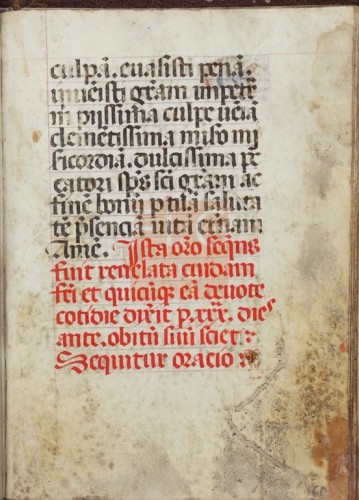 culpã. euasisti penã.
inueisti grãm impetr
m pijssima culpe ueiã
clemẽtissima miso mi
sicordiã. dulcissima pe
catori sp̃s sc̃i grãm ac
finẽ bonũ p tila saluta
tẽ p̃senciã uitã et̃nam
Amẽ. Ista or̃o seq̃ns
fuit reuelata cuidam
fr̃i et quicũqꝫ eã deuote
cotidie dixit p. xxx. dies
ante. obitũ suũ sciet:
Sequitur oracio: